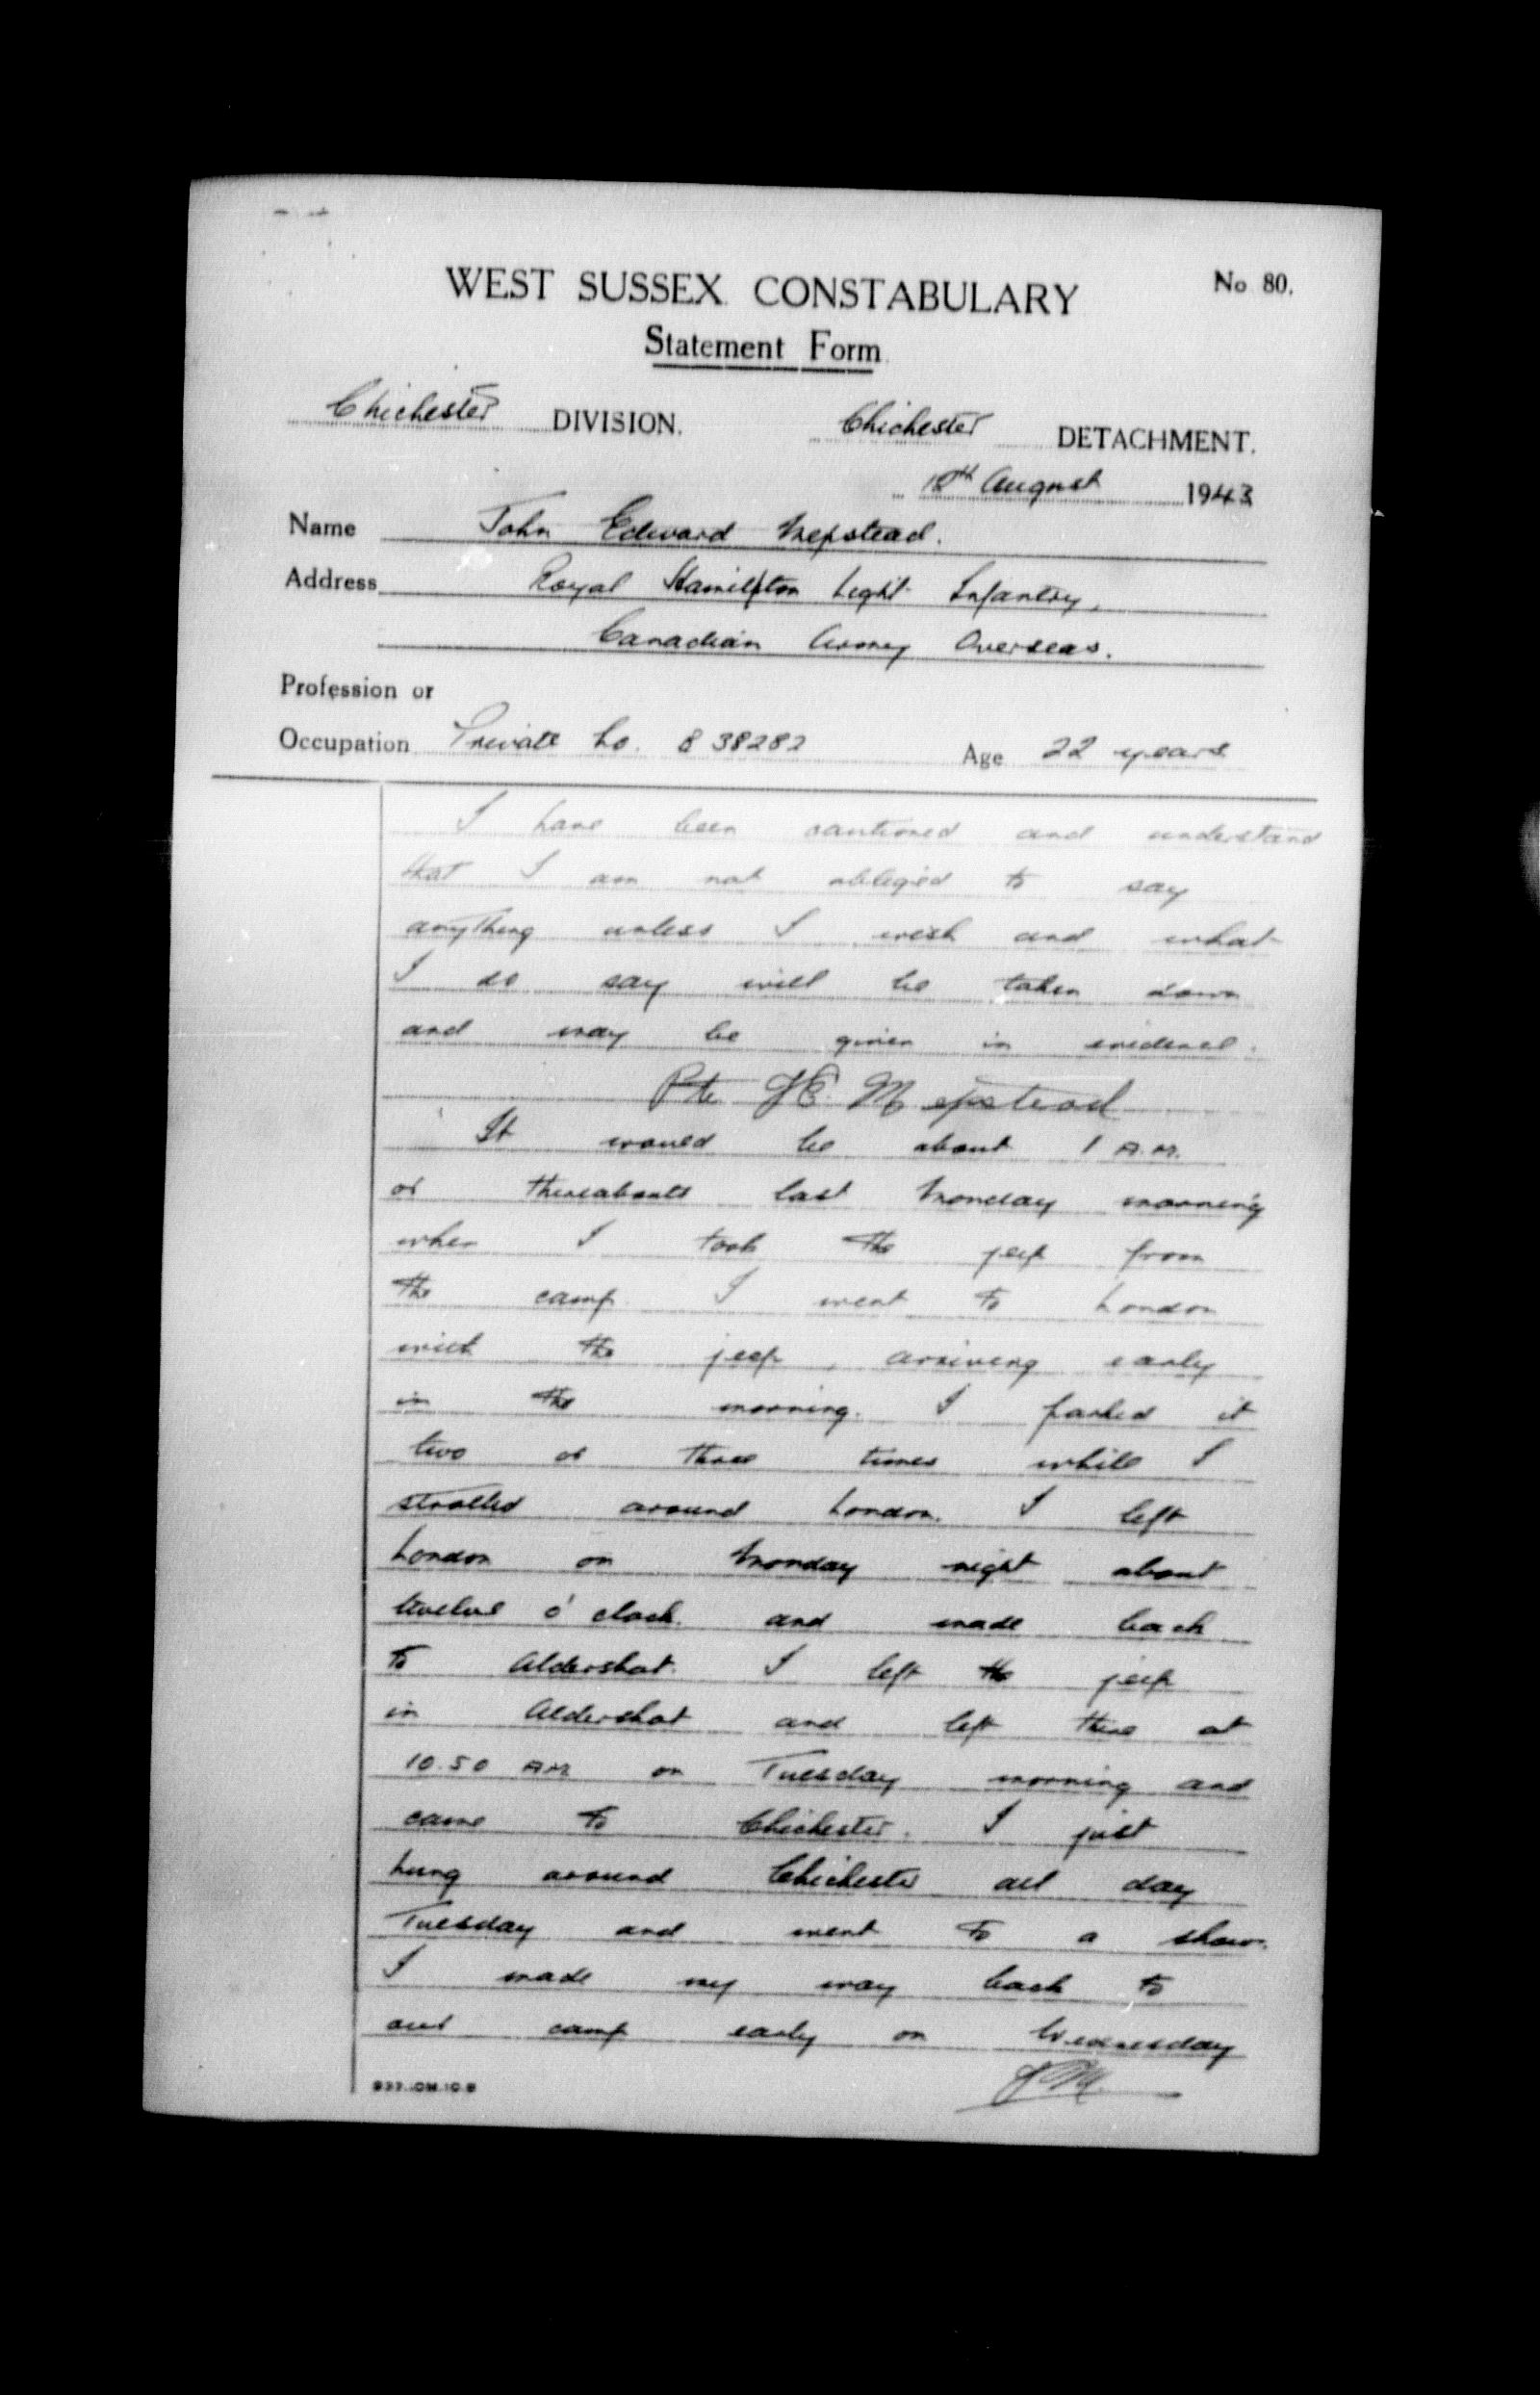 No 80.
WEST SUSSEX CONSTABULARY
Statement Form
Chichester DIVISION. Chichester DETACHMENT.
12th August 1943
Name John Edward Mepstead.
Address Royal Hamilton Light Infantry,
Canadian Army Overseas.
Profession or
Occupation Private No. B 38282 Age 22 years
I have been cautioned and understand
that I am not obliged to say
anything unless I wish and what
I do say will be taken down
and may be given in evidence.
Pte J E. Mepstead
It would be about 1 A.M.
or thereabouts last Monday morning
when I took the jeep from
the camp. I went to London
with the jeep, arriving early
in the morning. I parked it
two or three times while I
strolled around London. I left
London on Monday night about
twelve o'clock. and made back
to Aldershot. I left the jeep
in Aldershot and left there at
10.50 AM on Tuesday morning and
came to Chichester. I just
hung around Chichester all day
Tuesday and went to a show.
I made my way back to
our camp early on Wednesday
JM.